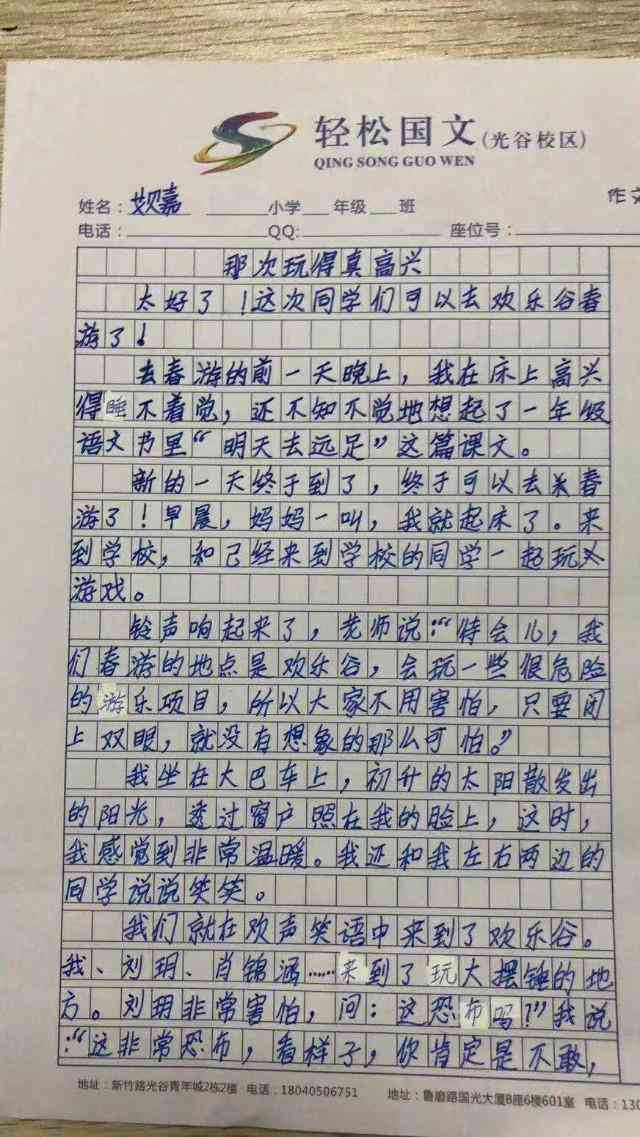 轻松国文(光谷校区)
QING SONG GUO WEN
作文
姓名：嘉 小学 年级 班
电话： QQ: 座位号：
那次玩得真高兴
太好了！这次同学们可以去欢乐谷春
游了！
去春游的前一天晚上，我在床上高兴
得睡不着觉，还不知不觉地想起了一年级
语文书里“明天去远足”这篇课文。
新的一天终于到了，终于可以去春
游了！早晨，妈妈一叫，我就起床了。来
到学校，和已经来到学校的同学一起玩
游戏。
铃声响起来了，老师说：“待会儿，我
们春游的地点是欢乐谷，会玩一些很危险
的游乐项目，所以大家不用害怕，只要闭
上双眼，就没有想象的那么可怕。”
我坐在大巴车上，初升的太阳散发出
的阳光，透过窗户照在我的脸上，这时，
我感觉到非常温暖。我还和我左右两边的
同学说说笑笑。
我们就在欢声笑语中来到了欢乐谷。
我、刘玥、肖锦涵……来到了玩大摆锤的地
方。刘玥非常害怕，问：这恐布吗？”我说
：“这非常恐布，看样子，你肯定是不敢，
地址：新竹路光谷青年城2栋2楼 电话：18040506751 地址：鲁磨路国光大厦B座6楼601室 电话：130